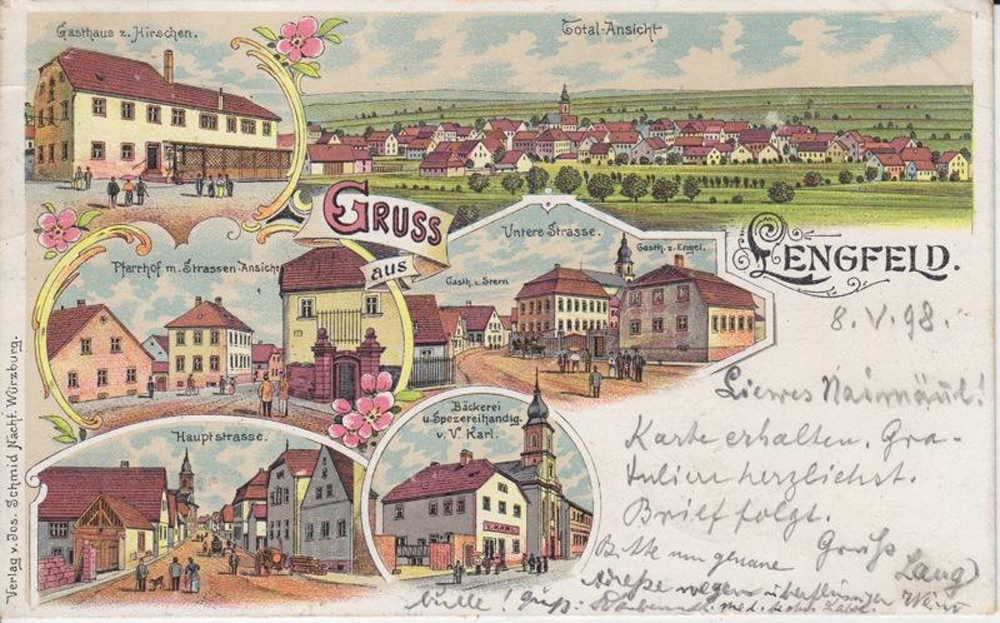 Gasthaus z. Hirschen.
Total-Ansicht
GRUSS
aus
LENGFELD.
Pfarrhof m. Strassen-Ansicht
Untere Strasse.
Gasth. z. Stern
Gasth. z. Engel.
Hauptstrasse.
Bäckerei
u. Spezereihandlg.
v. V. Karl.
V. KARL
Verlag v. Jos. Schmid Nachf. Würzburg.
8. V. 98.
Karte erhalten. Gra-
tuliere herzlichst.
Brief folgt.
Gruß
Lang
Bitte um genaue
Adreße wegen überflüssiger